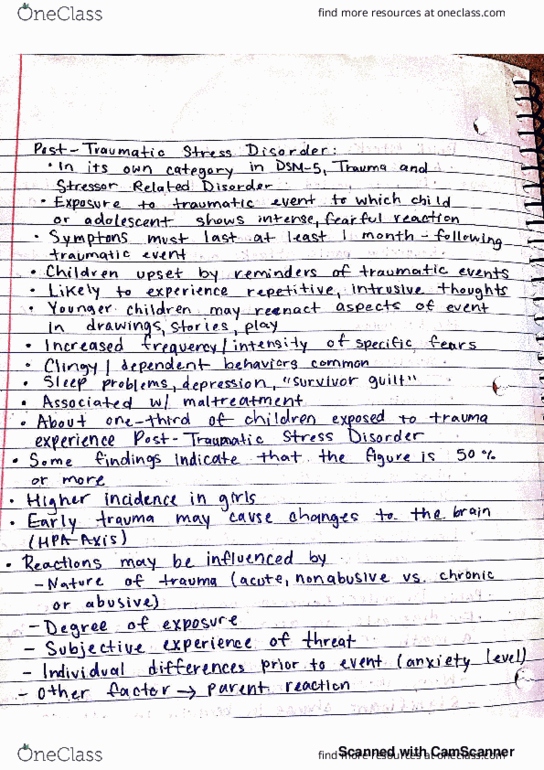 OneClass
find more resources at oneclass.com
Post-Traumatic Stress Disorder:
• In its own category in DSM-5, Trauma and
Stressor Related Disorder
• Exposure to traumatic event to which child
or adolescent shows intense, fearful reaction
• Symptoms must last at least 1 month - following
traumatic event
• Children upset by reminders of traumatic events
• Likely to experience repetitive, intrusive thoughts
• Younger children may reenact aspects of event
in drawings, stories, play
• Increased frequency/intensity of specific fears
• Clingy/dependent behaviors common
• Sleep problems, depression, "survivor guilt"
• Associated w/ maltreatment
• About one-third of children exposed to trauma
experience Post-Traumatic Stress Disorder
• Some findings indicate that the figure is 50%
or more
• Higher incidence in girls
• Early trauma may cause changes to the brain
(HPA-Axis)
• Reactions may be influenced by
- Nature of trauma (acute, nonabusive vs. chronic
or abusive)
- Degree of exposure
- Subjective experience of threat
- Individual differences prior to event (anxiety level)
- Other factor → parent reaction
OneClass
find more resources at oneclass.com
Scanned with CamScanner